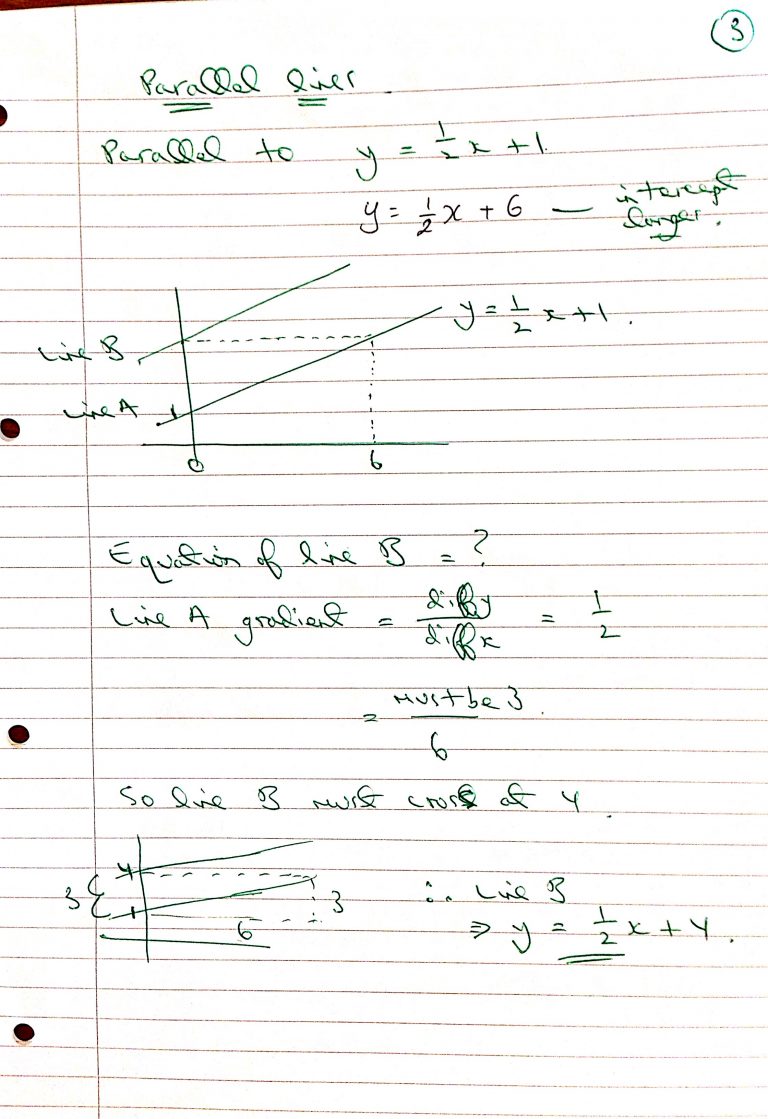 3
Parallel lines.
Parallel to y = 1/2 x + 1.
y = 1/2 x + 6 — intercept
larger.
y = 1/2 x + 1.
Line B
Line A 1
0 6
Equation of line B = ?
Line A gradient = diff y / diff x = 1/2
= must be 3 / 6
So line B must cross at 4.
4
3 { 1 3 ∴ Line B
6 ⇒ y = 1/2 x + 4.